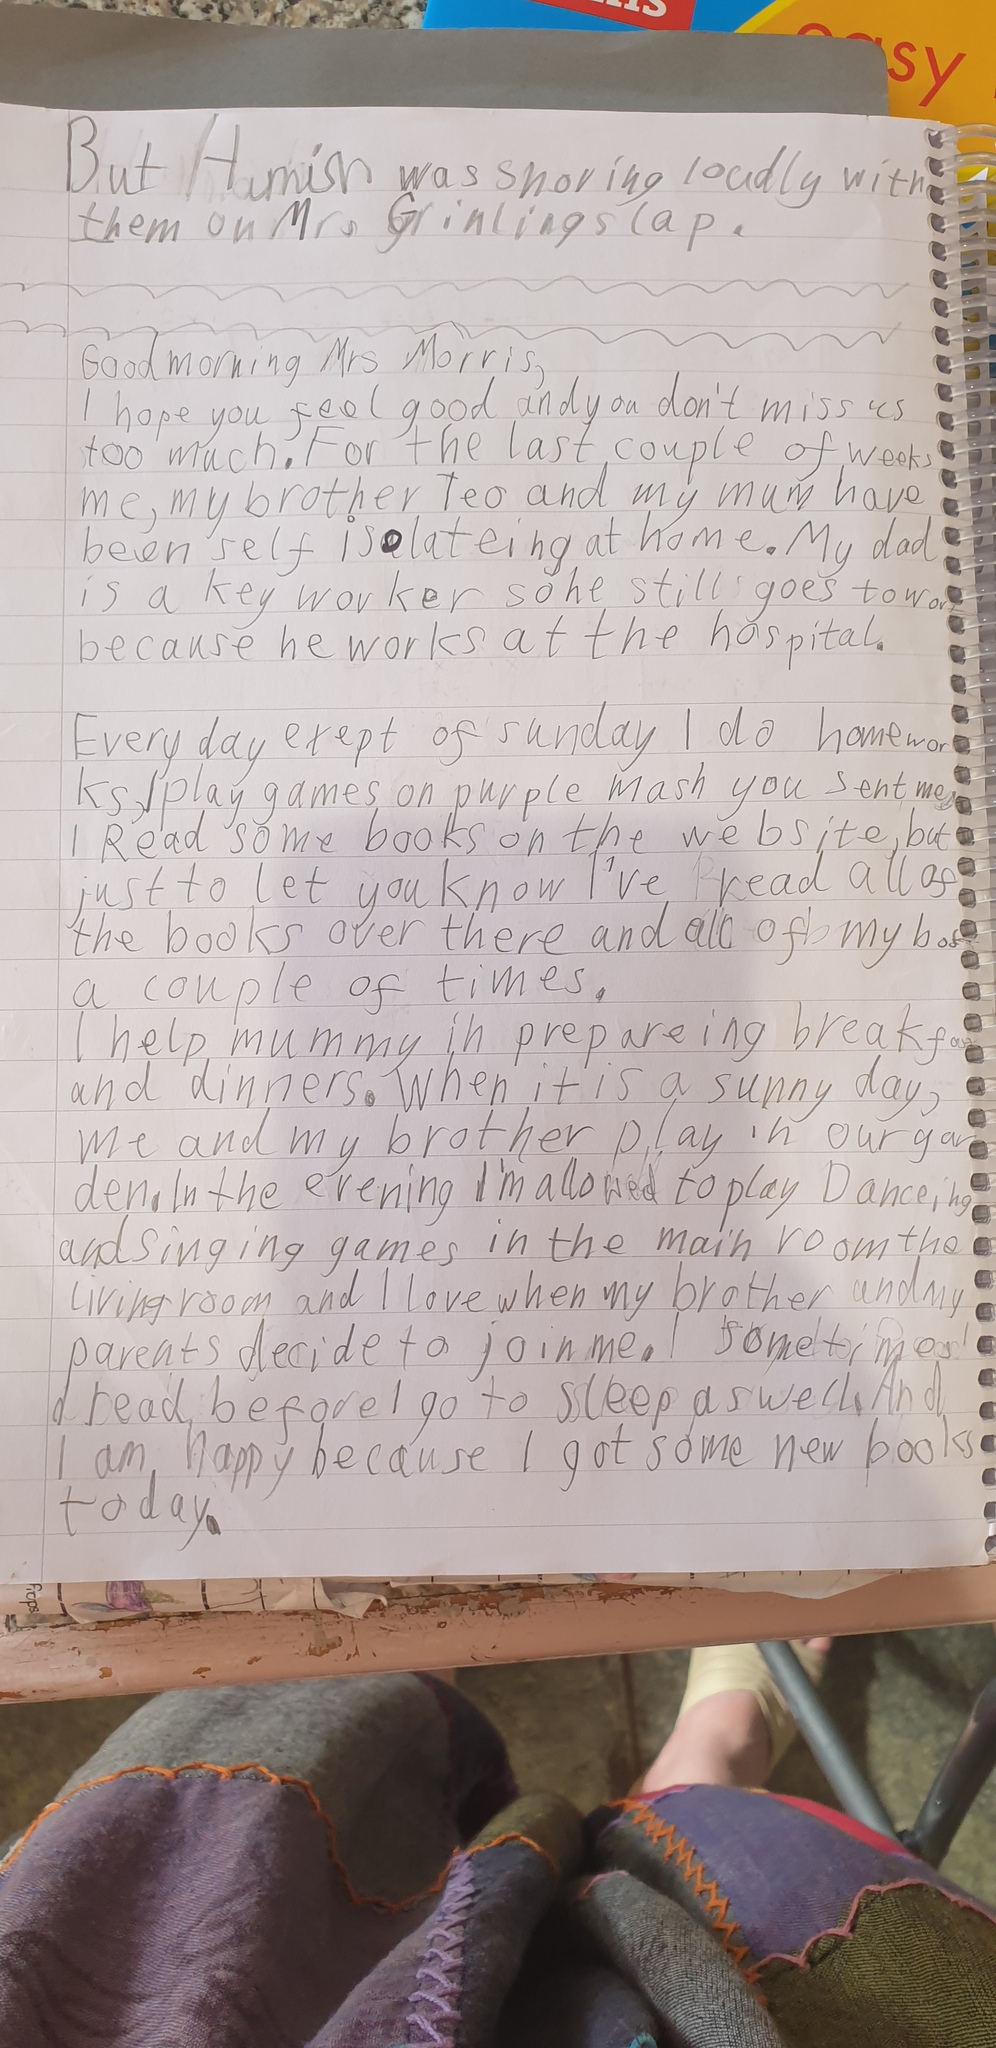 easy
But Hamish was snoring loudly with
them on Mrs Grinlings lap.
Good morning Mrs Morris,
I hope you feel good and you don't miss us
too much. For the last couple of weeks
me, my brother Teo and my mum have
been self isolateing at home. My dad
is a key worker so he still goes to work
because he works at the hospital.
Every day exept of sunday I do homewor
ks, I play games on purple mash you sent me,
I Read some books on the website, but
just to let you know I've read all of
the books over there and all of my
a couple of times.
I help mummy in prepareing breakfa
and dinners. When it is a sunny day,
me and my brother play in our gar
den. In the evening I'm allowed to play Danceing
and singing games in the main room the
living room and I love when my brother and my
parents decide to join me. I sometimes
read before I go to sleep as well. And
I am happy because I got some new books
today.